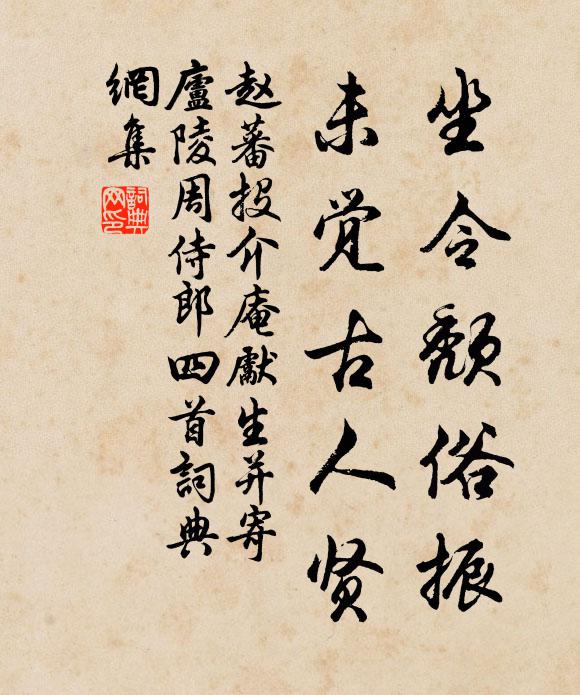 坐令颓俗振
未觉古人贤
赵蕃投介庵獻生并寄
廬陵周侍郎四首詞典
網集
詞典
网印